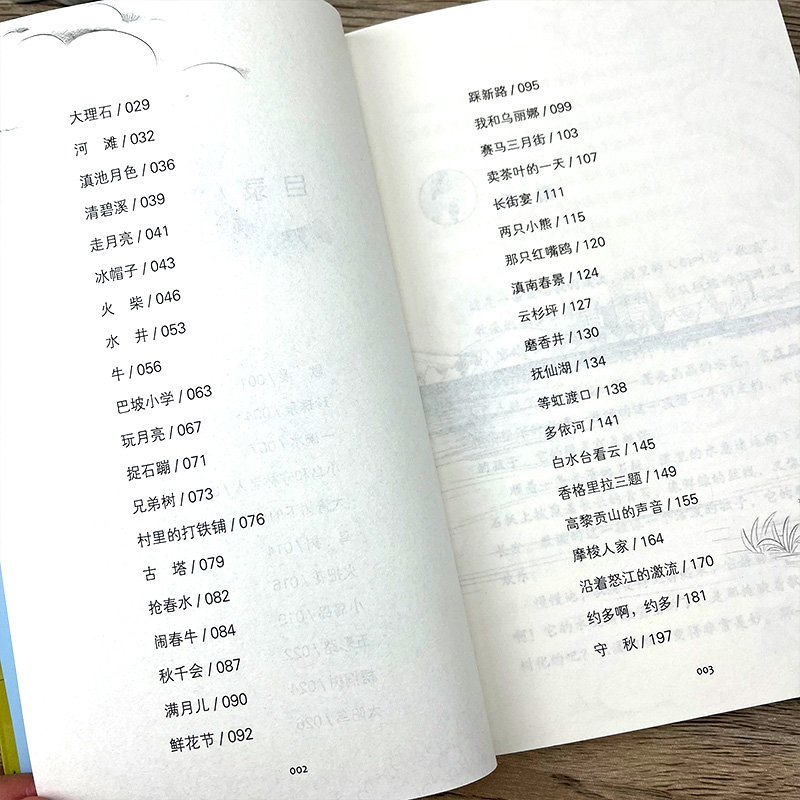 大理石 / 029
河　滩 / 032
滇池月色 / 036
清碧溪 / 039
走月亮 / 041
冰帽子 / 043
火　柴 / 046
水　井 / 053
牛 / 056
巴坡小学 / 063
玩月亮 / 067
捉石蹦 / 071
兄弟树 / 073
村里的打铁铺 / 076
古　塔 / 079
抢春水 / 082
闹春牛 / 084
秋千会 / 087
满月儿 / 090
鲜花节 / 092
002
踩新路 / 095
我和乌丽娜 / 099
赛马三月街 / 103
卖茶叶的一天 / 107
长街宴 / 111
两只小熊 / 115
那只红嘴鸥 / 120
滇南春景 / 124
云杉坪 / 127
磨香井 / 130
抚仙湖 / 134
等虹渡口 / 138
多依河 / 141
白水台看云 / 145
香格里拉三题 / 149
高黎贡山的声音 / 155
摩梭人家 / 164
沿着怒江的激流 / 170
约多啊，约多 / 181
守　秋 / 197
003